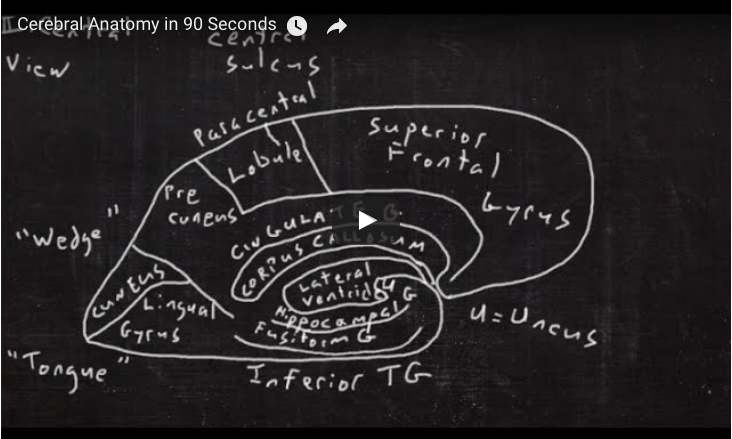 Cerebral Anatomy in 90 Seconds
II Central
View
central
sulcus
Paracentral
Lobule
Superior
Frontal
Gyrus
Pre
cuneus
"Wedge"
CINGULATE G
CORPUS CALLOSUM
Lateral
Ventricle
U
G
Hippocampal
Fusiform G
CUNEUS
Lingual
Gyrus
U = Uncus
"Tongue"
Inferior TG